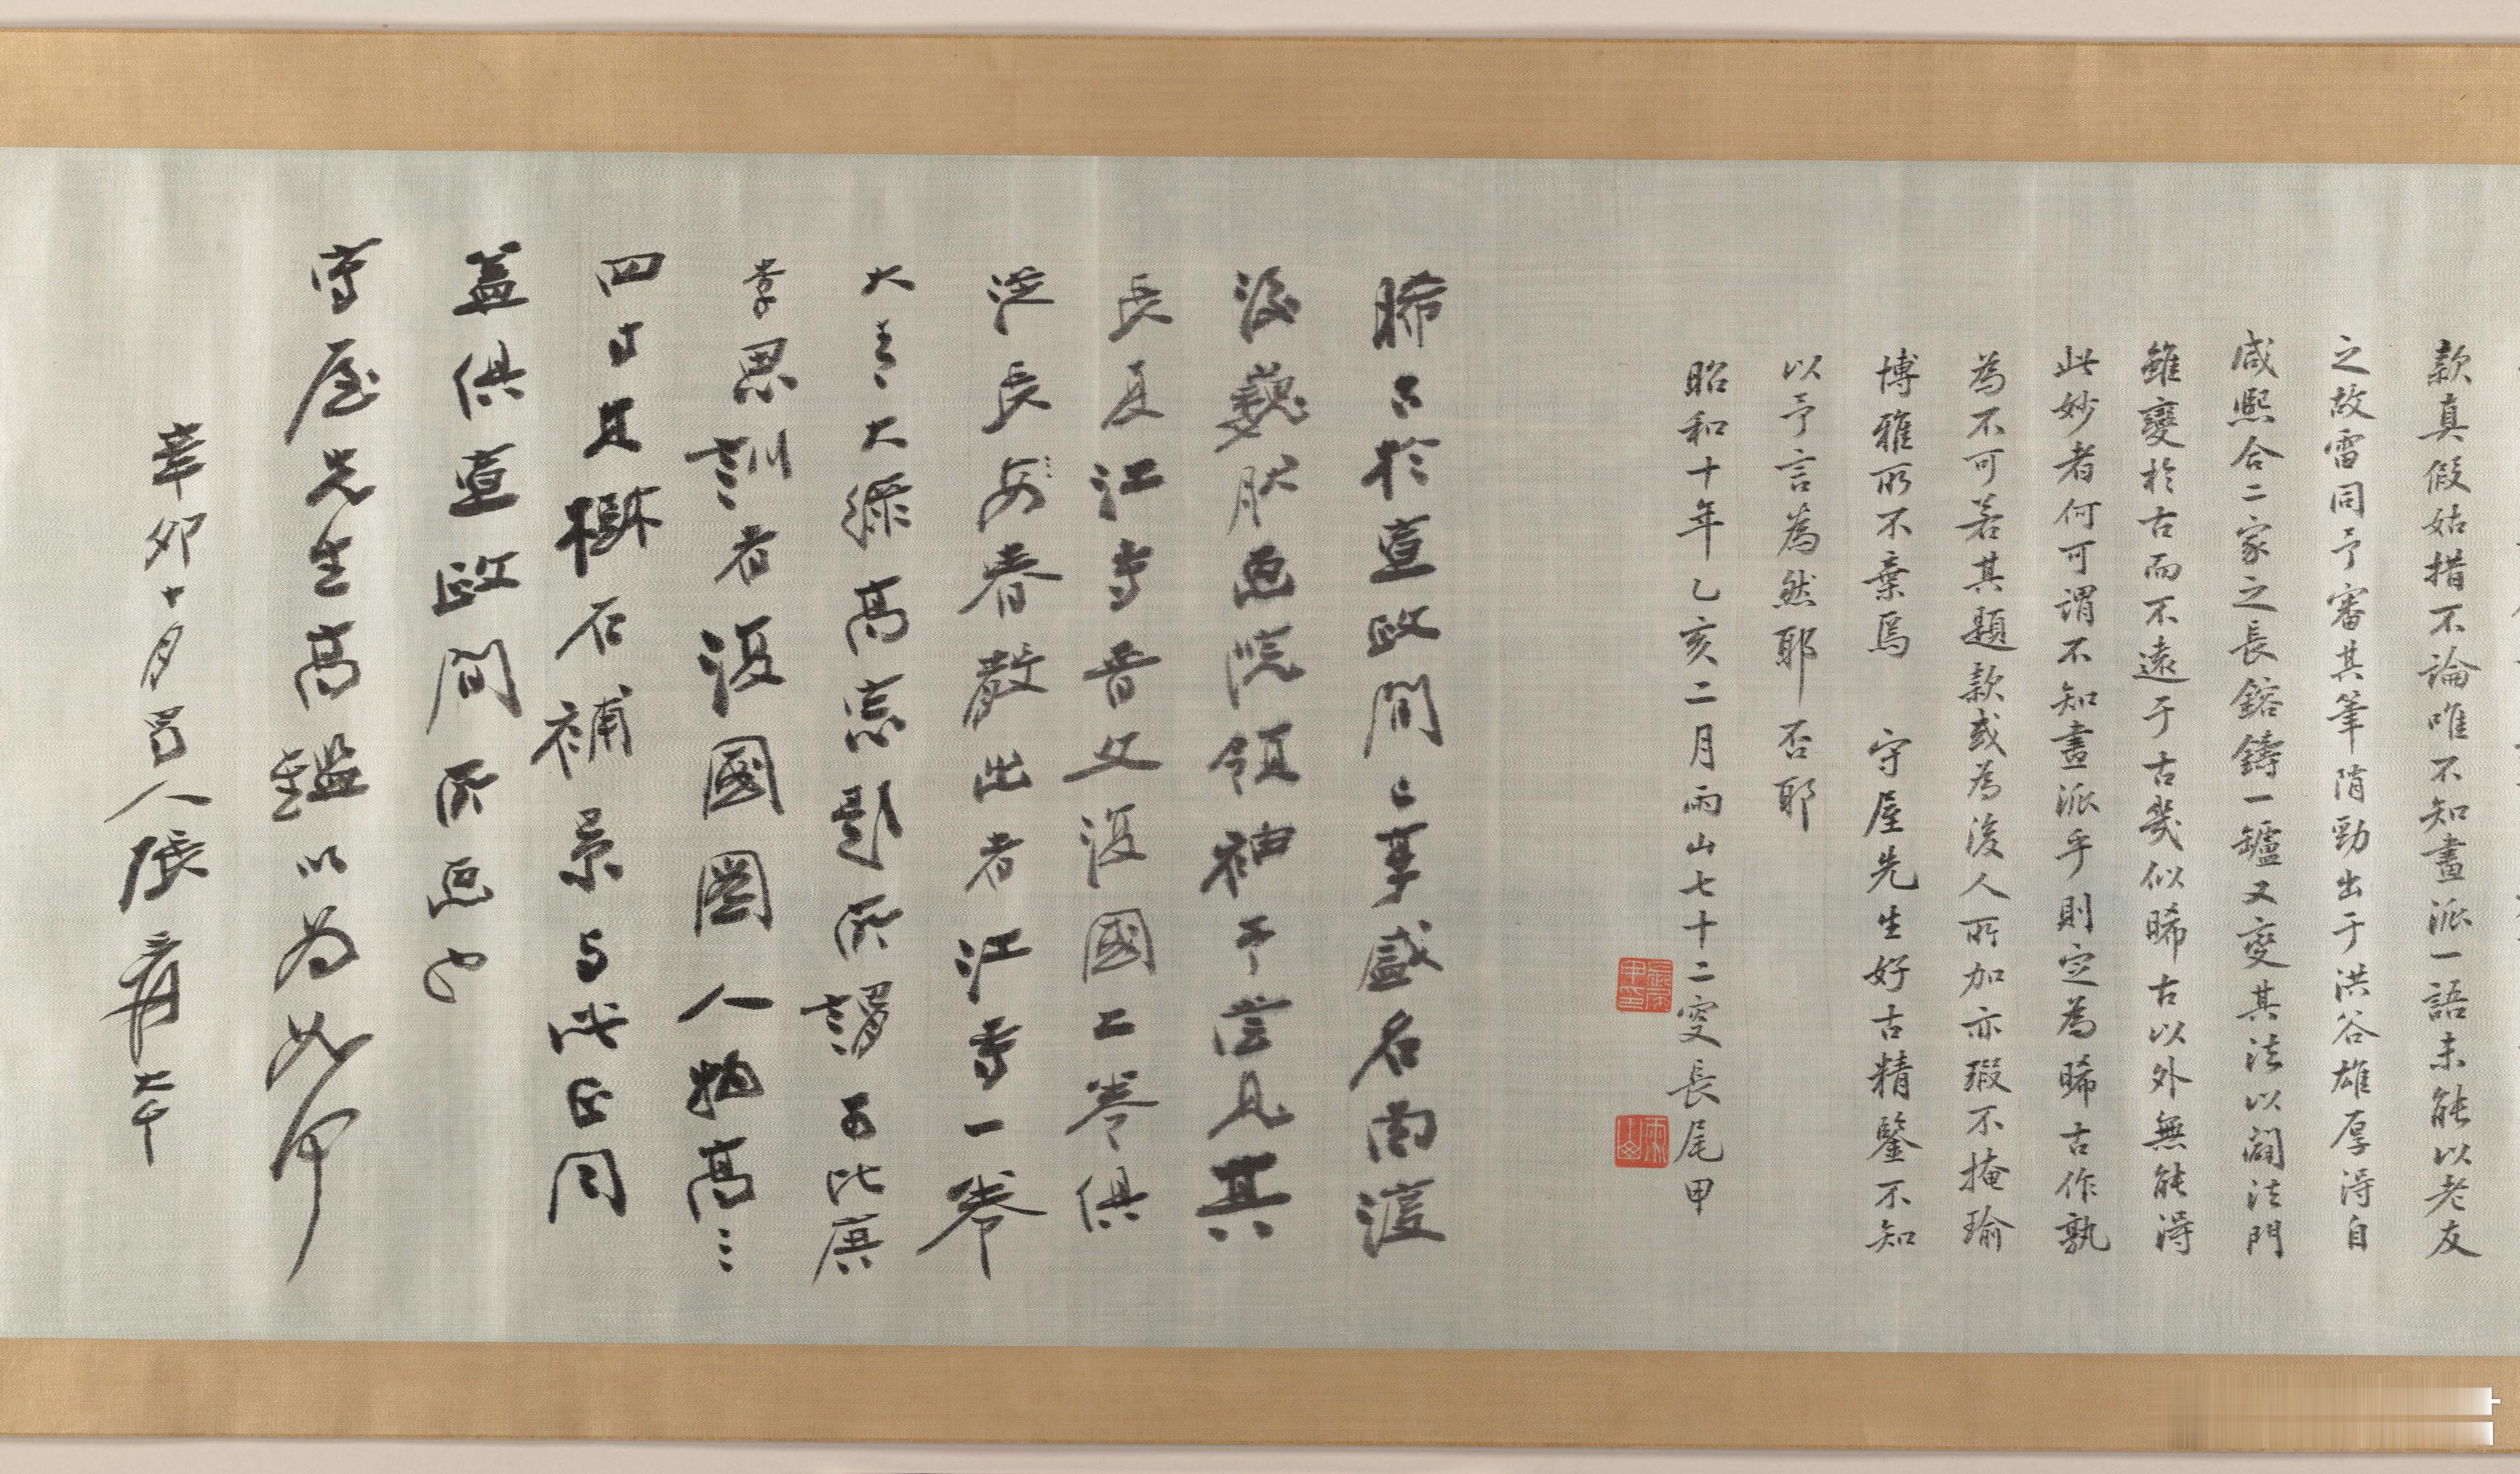 款真假姑措不論唯不知畫派一語未能以老友
之故雷同予審其筆隋勁出于洪谷雄厚得自
咸熙合二家之長鎔鑄一罏又變其法以闢法門
雖變於古而不遠于古幾似晞古以外無能得
此妙者何可謂不知畫派乎則定為晞古作孰
為不可若其題款或為後人所加亦瑕不掩瑜
博雅所不棄焉 守屋先生好古精鑒不知
以予言為然耶否耶
昭和十年乙亥二月雨山七十二叟長尾甲
晞古於宣政間已享盛名南渡
後巍肰畫院領袖予嘗見其
長夏江寺晉文復國二卷俱
從長安春散出者江寺一卷
大青大綠高宗題所謂可比唐
李思訓者復國圖人物高
四寸且樹石補景與此正同
蓋俱宣政間所畫也
守屋先生高鑑以為如何
辛卯十月蜀人張爰大千